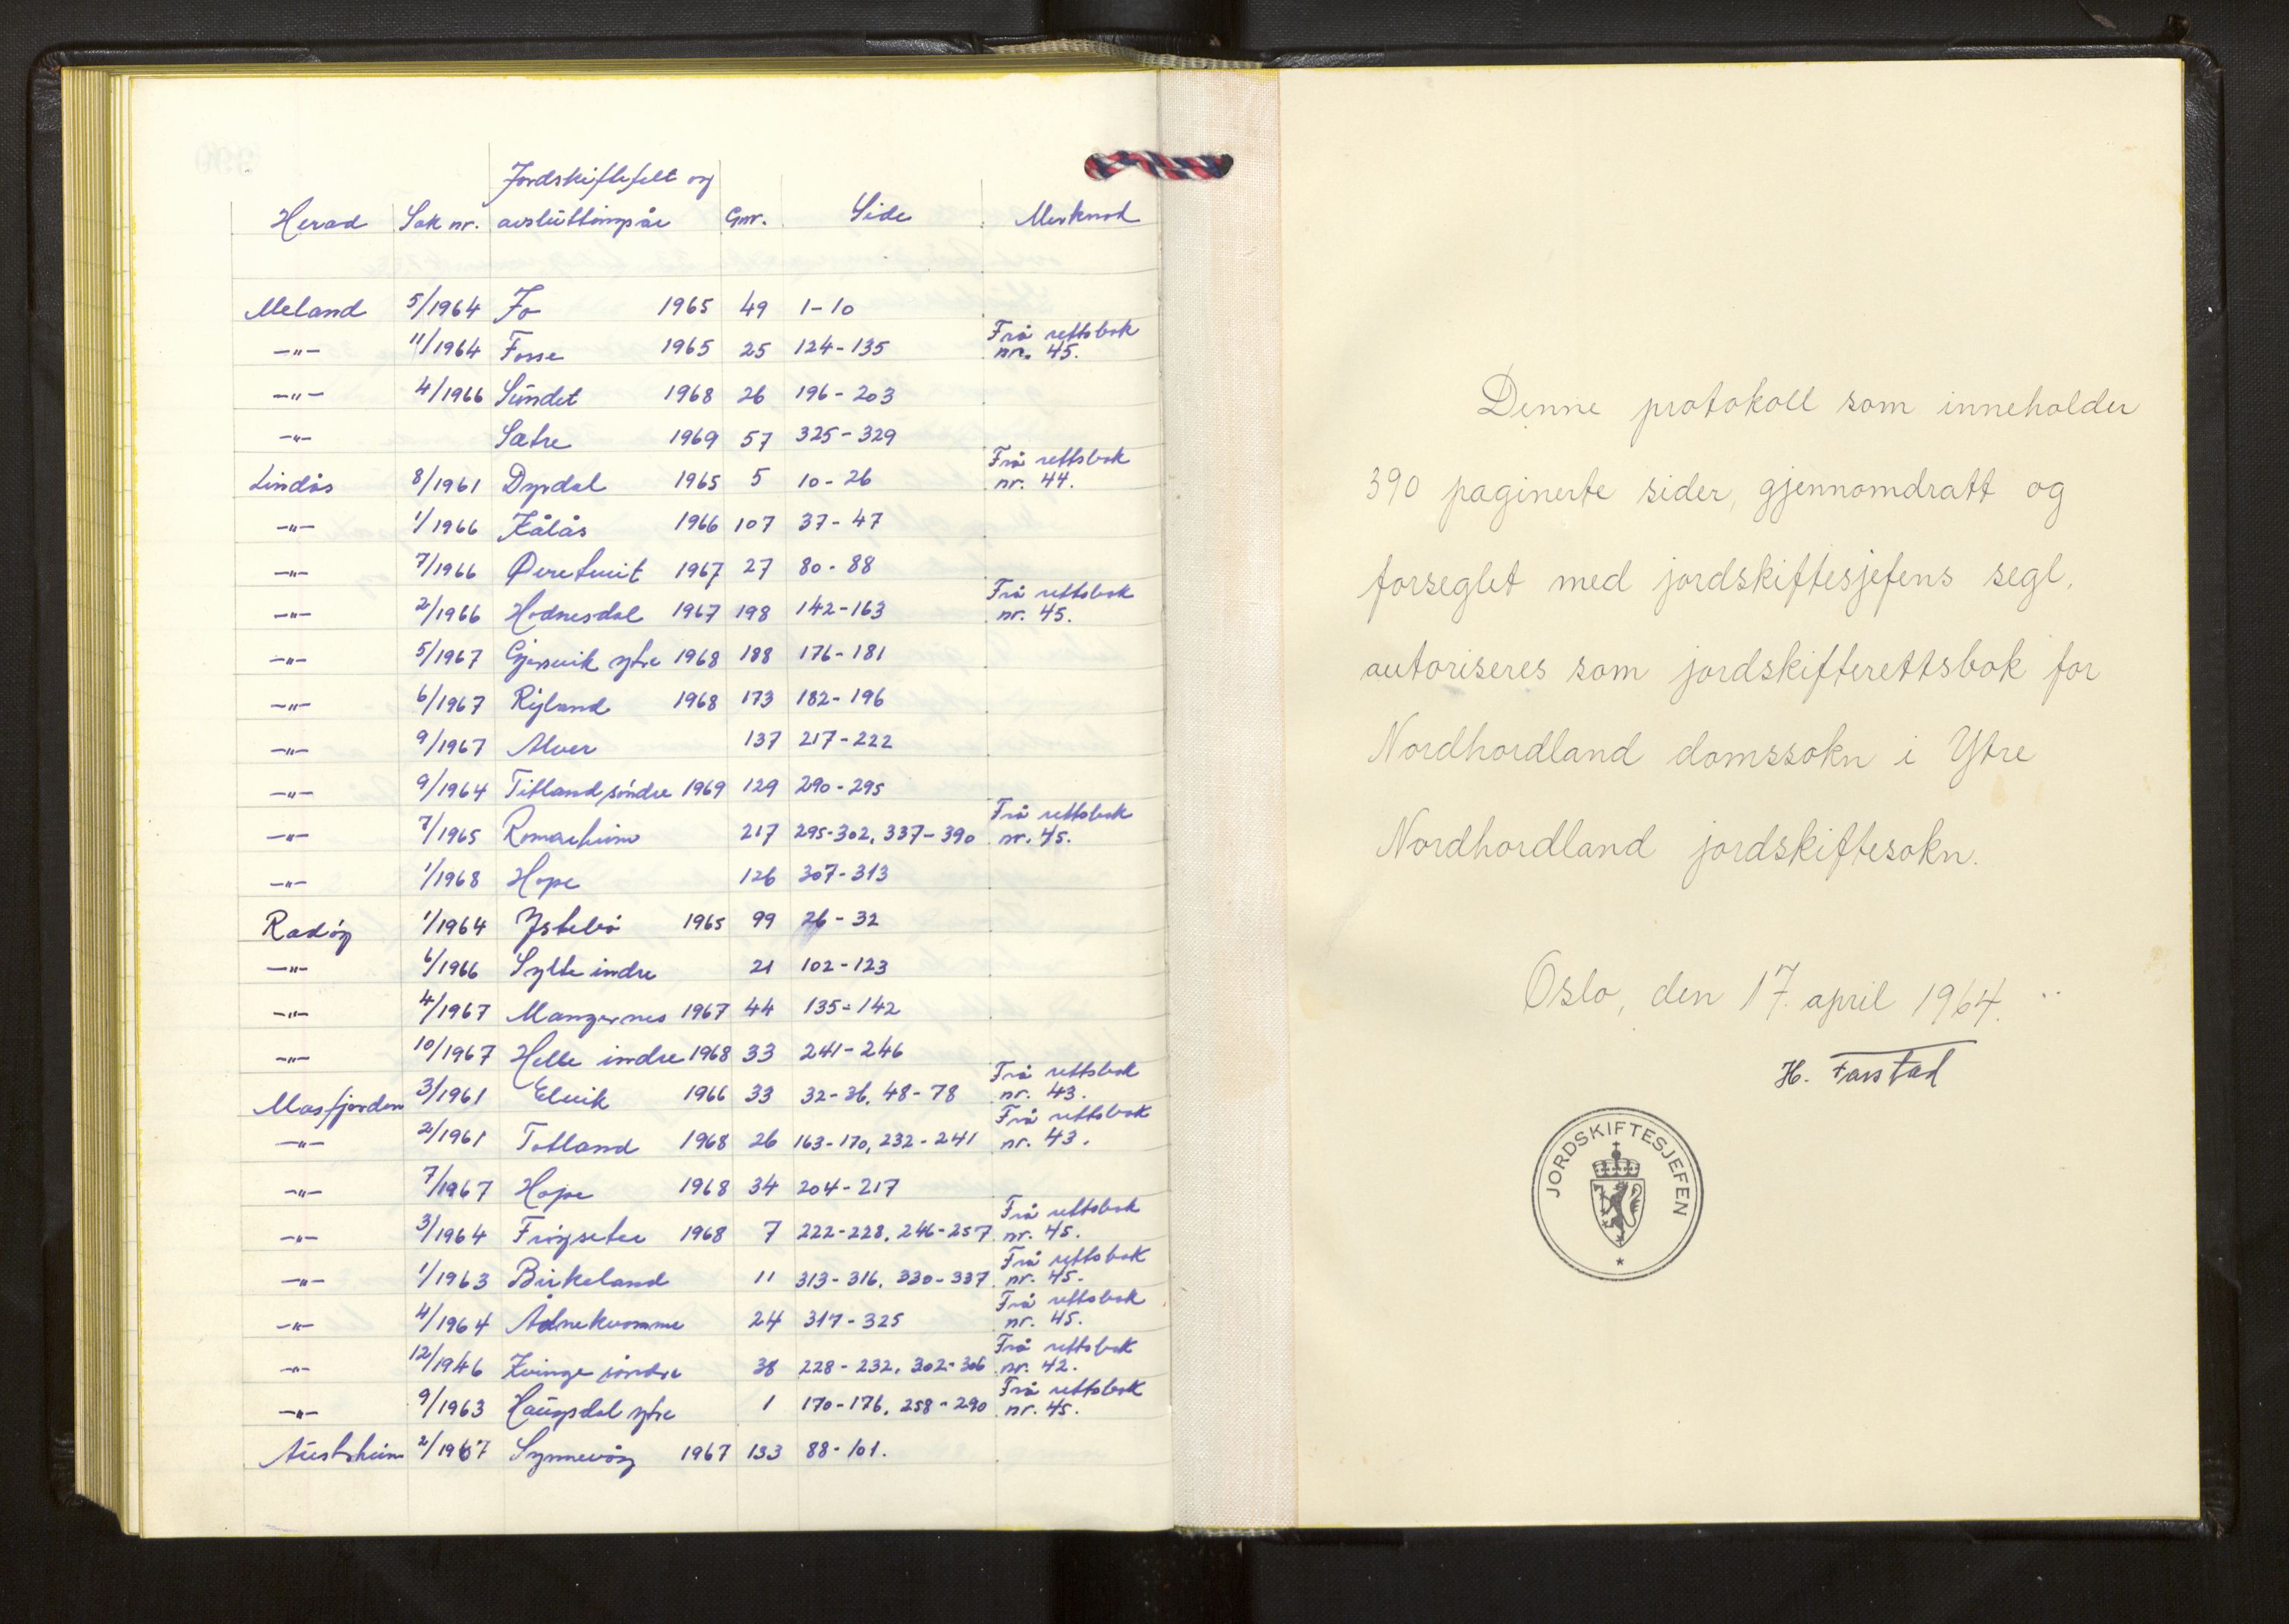 Jordskiftefelt og
Herad Sak nr. avsluttingsår Gnr. Side Merknad
Meland 5/1964 Fo 1965 49 1-10
—"— 11/1964 Fosse 1965 25 124-135 Frå rettsbok nr. 45.
—"— 4/1966 Sundet 1968 26 196-203
—"— Sætre 1969 57 325-329
Lindås 8/1961 Dyrdal 1965 5 10-26 Frå rettsbok nr. 44.
—"— 1/1966 Kålås 1966 107 37-47
—"— 7/1966 Øvretveit 1967 27 80-88
—"— 2/1966 Hodnesdal 1967 198 142-163 Frå rettsbok nr. 45.
—"— 5/1967 Gjervik ytre 1968 188 176-181
—"— 6/1967 Ryland 1968 173 182-196
—"— 9/1967 Alver 137 217-222
—"— 9/1964 Titland søndre 1969 129 290-295
—"— 7/1965 Romarheim 217 295-302, 337-390 Frå rettsbok nr. 45.
—"— 1/1968 Hope 126 307-313
Radøy 1/1964 Ystebø 1965 99 26-32
—"— 6/1966 Sylte indre 21 102-123
—"— 4/1967 Mangernes 1967 44 135-142
—"— 10/1967 Helle indre 1968 33 241-246
Masfjorden 3/1961 Elvik 1966 33 32-36, 48-78 Frå rettsbok nr. 43.
—"— 2/1961 Totland 1968 26 163-170, 232-241 Frå rettsbok nr. 43.
—"— 7/1967 Hope 1968 34 204-217
—"— 3/1964 Frøyseter 1968 7 222-228, 246-257 Frå rettsbok nr. 45.
—"— 1/1963 Birkeland 11 313-316, 330-337 Frå rettsbok nr. 45.
—"— 4/1964 Ådnekvamme 24 317-325 Frå rettsbok nr. 45.
—"— 12/1946 Kvinge søndre 38 228-232, 302-306 Frå rettsbok nr. 42.
—"— 9/1963 Haugsdal ytre 1 170-176, 258-290 Frå rettsbok nr. 45.
Austrheim 2/1967 Synnevåg 1967 133 88-101.
Denne protokoll som inneholder
390 paginerte sider, gjennomdratt og
forseglet med jordskiftesjefens segl,
autoriseres som jordskifterettsbok for
Nordhordland domssokn i Ytre
Nordhordland jordskiftesokn.
Oslo, den 17. april 1964.
H. Farstad
JORDSKIFTESJEFEN